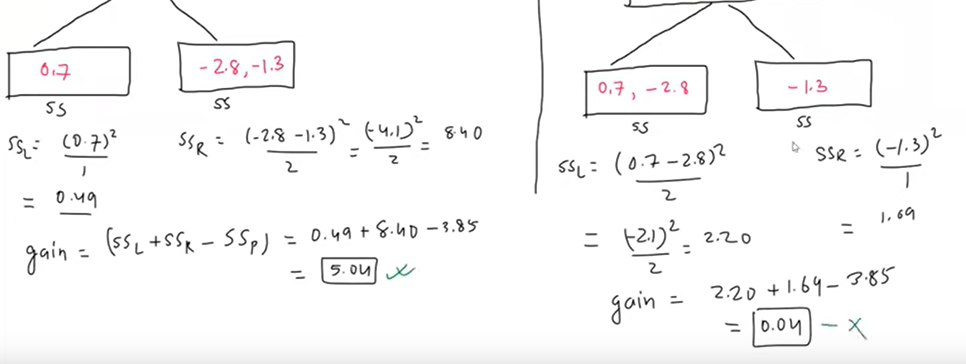 0.7
-2.8, -1.3
SS
SS
SS_L = (0.7)^2 / 1
= 0.49
SS_R = (-2.8 -1.3)^2 / 2 = (-4.1)^2 / 2 = 8.40
gain = (SS_L + SS_R - SS_P) = 0.49 + 8.40 - 3.85
= 5.04 ✓
0.7, -2.8
-1.3
SS
SS
SS_L = (0.7 - 2.8)^2 / 2
= (-2.1)^2 / 2 = 2.20
SS_R = (-1.3)^2 / 1
= 1.69
gain = 2.20 + 1.64 - 3.85
= 0.04 - ×